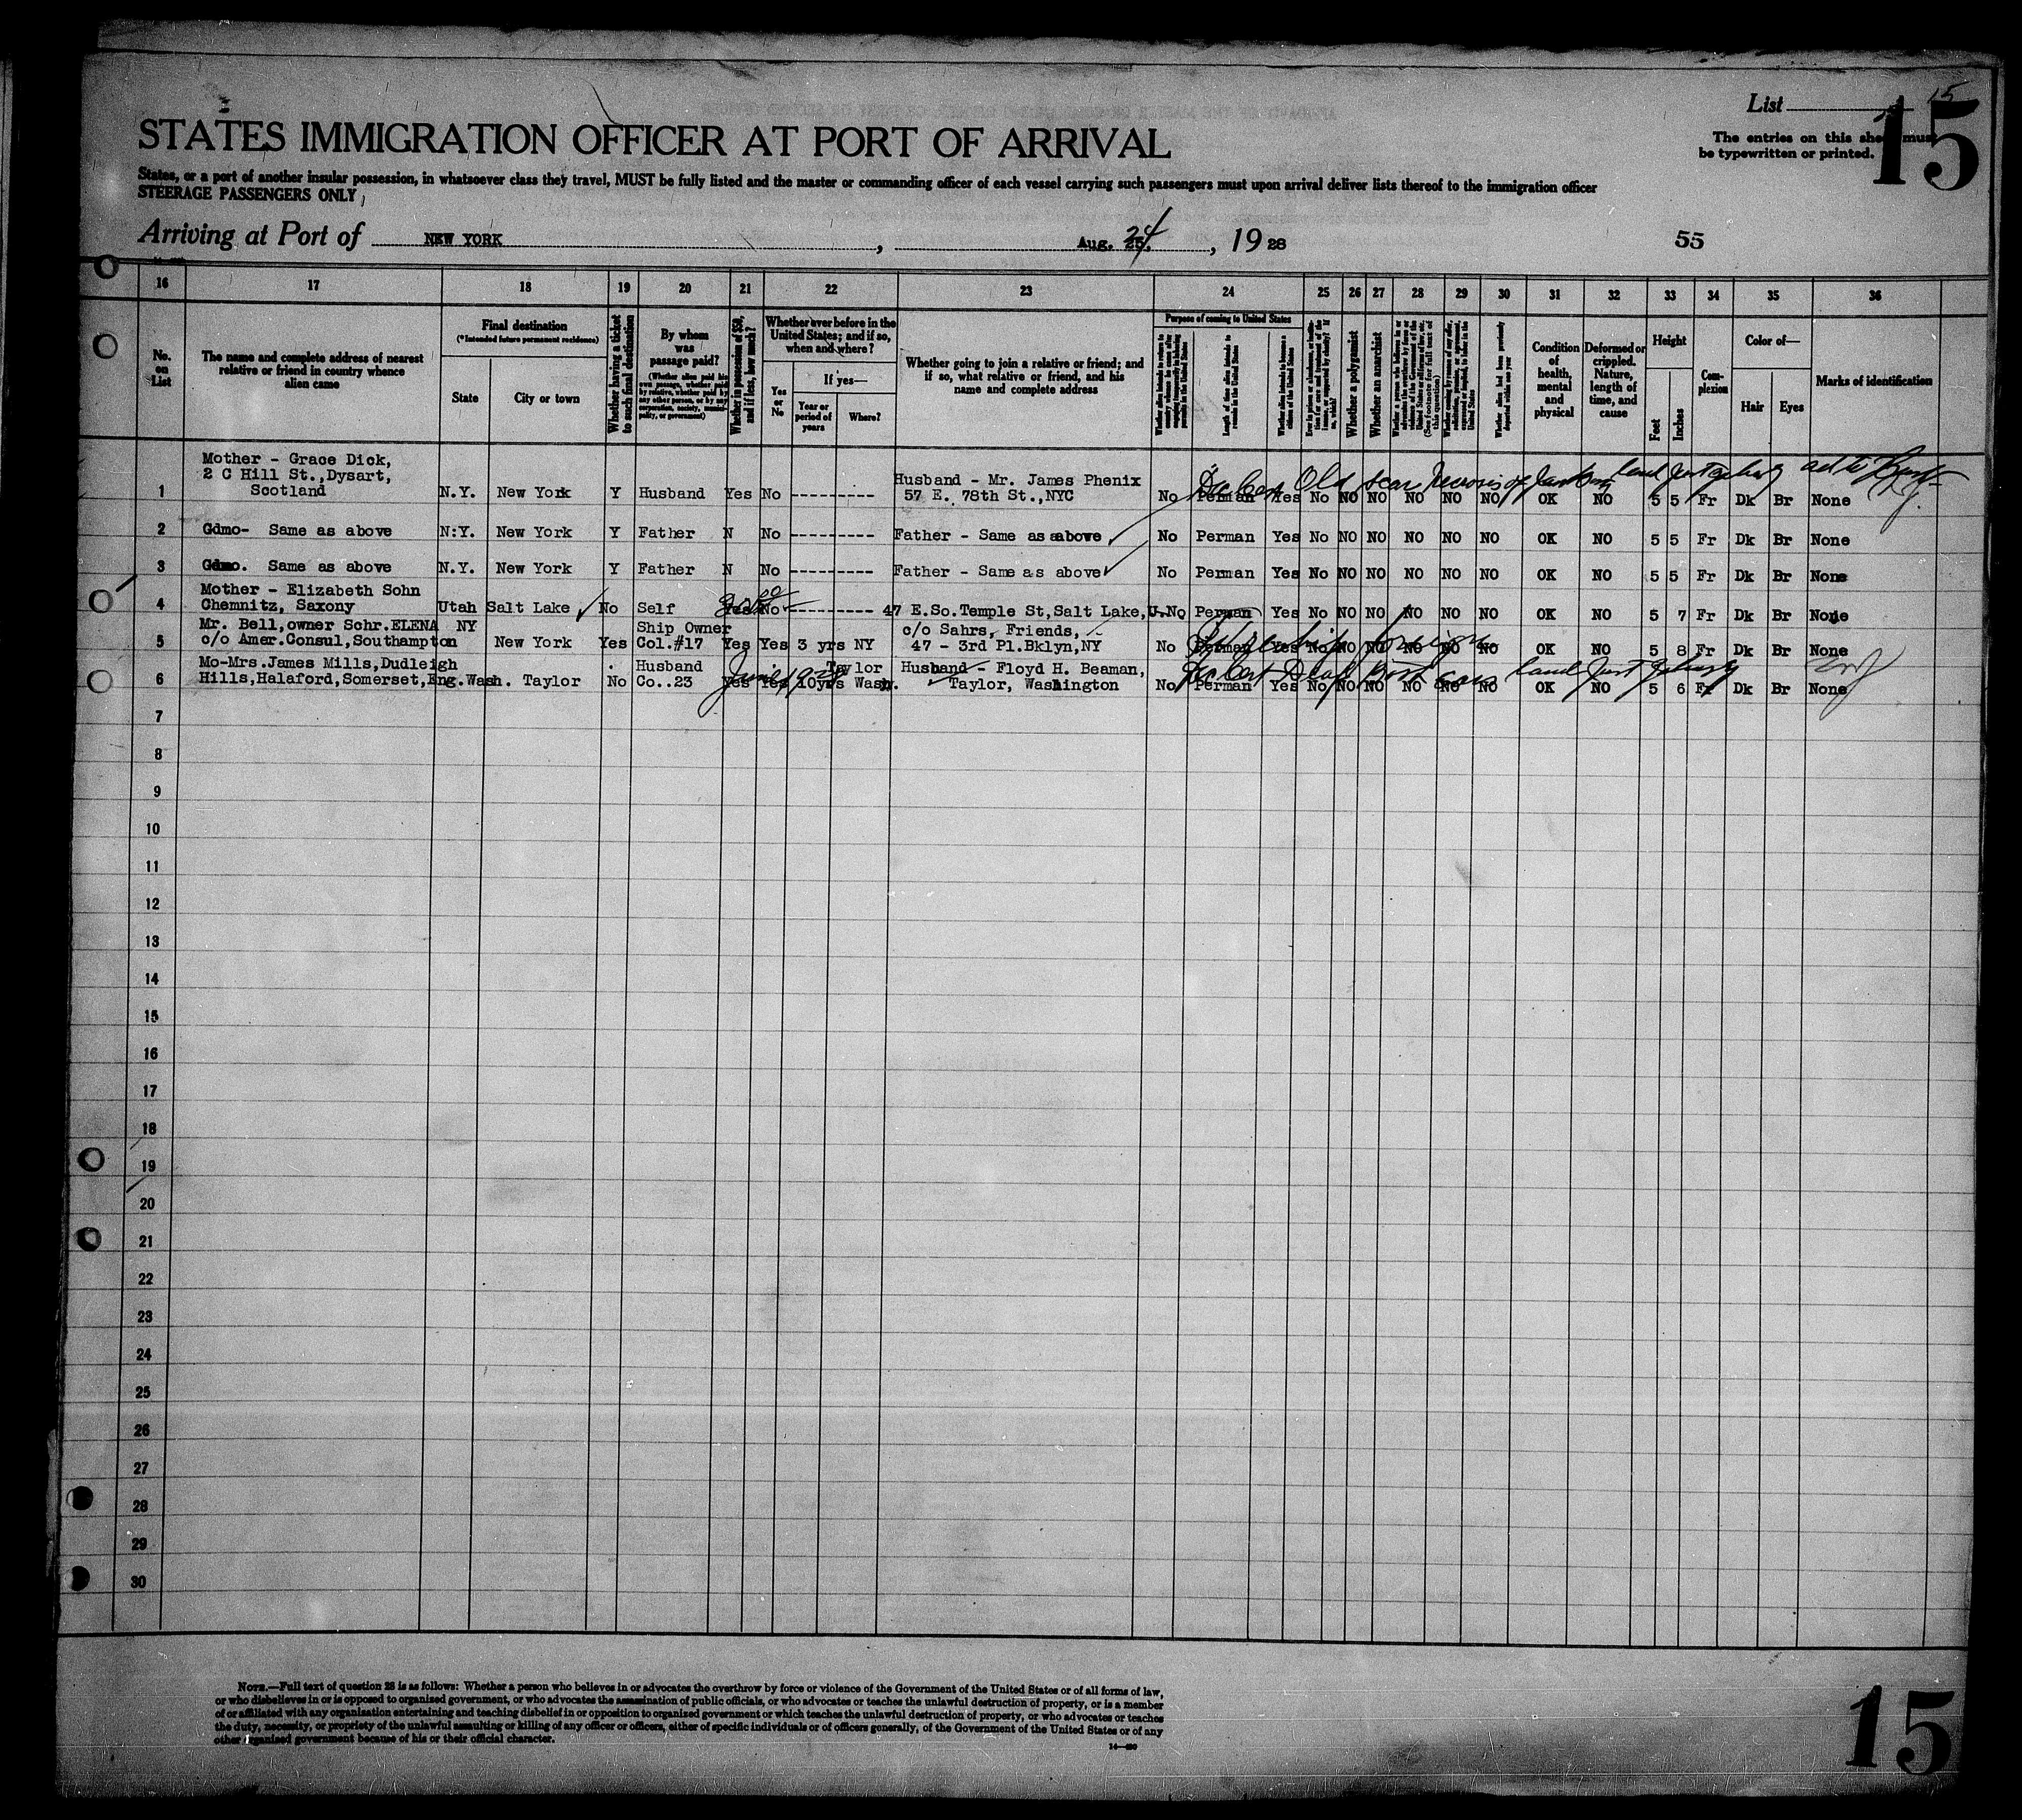 List 15
15
The entries on this sheet must
be typewritten or printed.
STATES IMMIGRATION OFFICER AT PORT OF ARRIVAL
States, or a port of another insular possession, in whatsoever class they travel, MUST be fully listed and the master or commanding officer of each vessel carrying such passengers must upon arrival deliver lists thereof to the immigration officer
STEERAGE PASSENGERS ONLY
Arriving at Port of NEW YORK, Aug. 24, 1928 55
16 17 18 19 20 21 22 23 24 25 26 27 28 29 30 31 32 33 34 35 36
No. on List
The name and complete address of nearest relative or friend in country whence alien came
Final destination
(*Intended future permanent residence)
State
City or town
Whether having a ticket to such final destination
By whom was passage paid?
(Whether alien paid his own passage, whether paid by relative, whether paid by any other person, or by any corporation, society, municipality, or government)
Whether in possession of $50, and if less, how much?
Whether ever before in the United States; and if so, when and where?
Yes or No
If yes—
Year or period of years
Where?
Whether going to join a relative or friend; and if so, what relative or friend, and his name and complete address
Purpose of coming to United States
Whether alien intends to return to country whence he came after engaging temporarily in laboring pursuits in the United States
Length of time alien intends to remain in the United States
Whether alien intends to become a citizen of the United States
Whether a polygamist
Whether an anarchist
(See footnote for full text of this question)
Whether alien had been previously deported within one year
Condition of health, mental and physical
Deformed or crippled. Nature, length of time, and cause
Height
Feet
Inches
Complexion
Color of—
Hair
Eyes
Marks of identification
Mother - Grace Dick,
2 C Hill St.,Dysart, Husband - Mr. James Phenix
1 Scotland N.Y. New York Y Husband Yes No ---------- 57 E. 78th St.,NYC No Perman Yes No NO NO NO NO NO OK NO 5 5 Fr Dk Br None
Old scar
2 Gdmo- Same as above N:Y. New York Y Father N No ---------- Father - Same as above No Perman Yes No NO NO NO NO NO OK NO 5 5 Fr Dk Br None
3 Gdmo. Same as above N.Y. New York Y Father N No ---------- Father - Same as above No Perman Yes No NO NO NO NO NO OK NO 5 5 Fr Dk Br None
Mother - Elizabeth Sohn
4 Chemnitz, Saxony Utah Salt Lake No Self Yes No ---------- 47 E.So.Temple St,Salt Lake,U. No Perman Yes No NO NO NO NO NO OK NO 5 7 Fr Dk Br None
Mr. Bell,owner Schr.ELENA NY Ship Owner c/o Sahrs, Friends,
5 c/o Amer.Consul,Southampton New York Yes Col.#17 Yes Yes 3 yrs NY 47 - 3rd Pl.Bklyn,NY No Perman Yes No NO NO NO NO NO OK NO 5 8 Fr Dk Br None
Mo-Mrs.James Mills,Dudleigh Husband Taylor Husband - Floyd H. Beaman,
6 Hills,Halaford,Somerset,Eng. Wash. Taylor No Co..23 Yes Yes 10yrs Wash. Taylor, Washington No Perman Yes No NO NO NO NO NO OK NO 5 6 Fr Dk Br None
7
8
9
10
11
12
13
14
15
16
17
18
19
20
21
22
23
24
25
26
27
28
29
30
NOTE.—Full text of question 28 is as follows: Whether a person who believes in or advocates the overthrow by force or violence of the Government of the United States or of all forms of law,
or who disbelieves in or is opposed to organized government, or who advocates the assassination of public officials, or who advocates or teaches the unlawful destruction of property, or is a member
of or affiliated with any organization entertaining and teaching disbelief in or opposition to organized government or which teaches the unlawful destruction of property, or who advocates or teaches
the duty, necessity, or propriety of the unlawful assaulting or killing of any officer or officers, either of specific individuals or of officers generally, of the Government of the United States or of any
other organized government because of his or their official character.
15